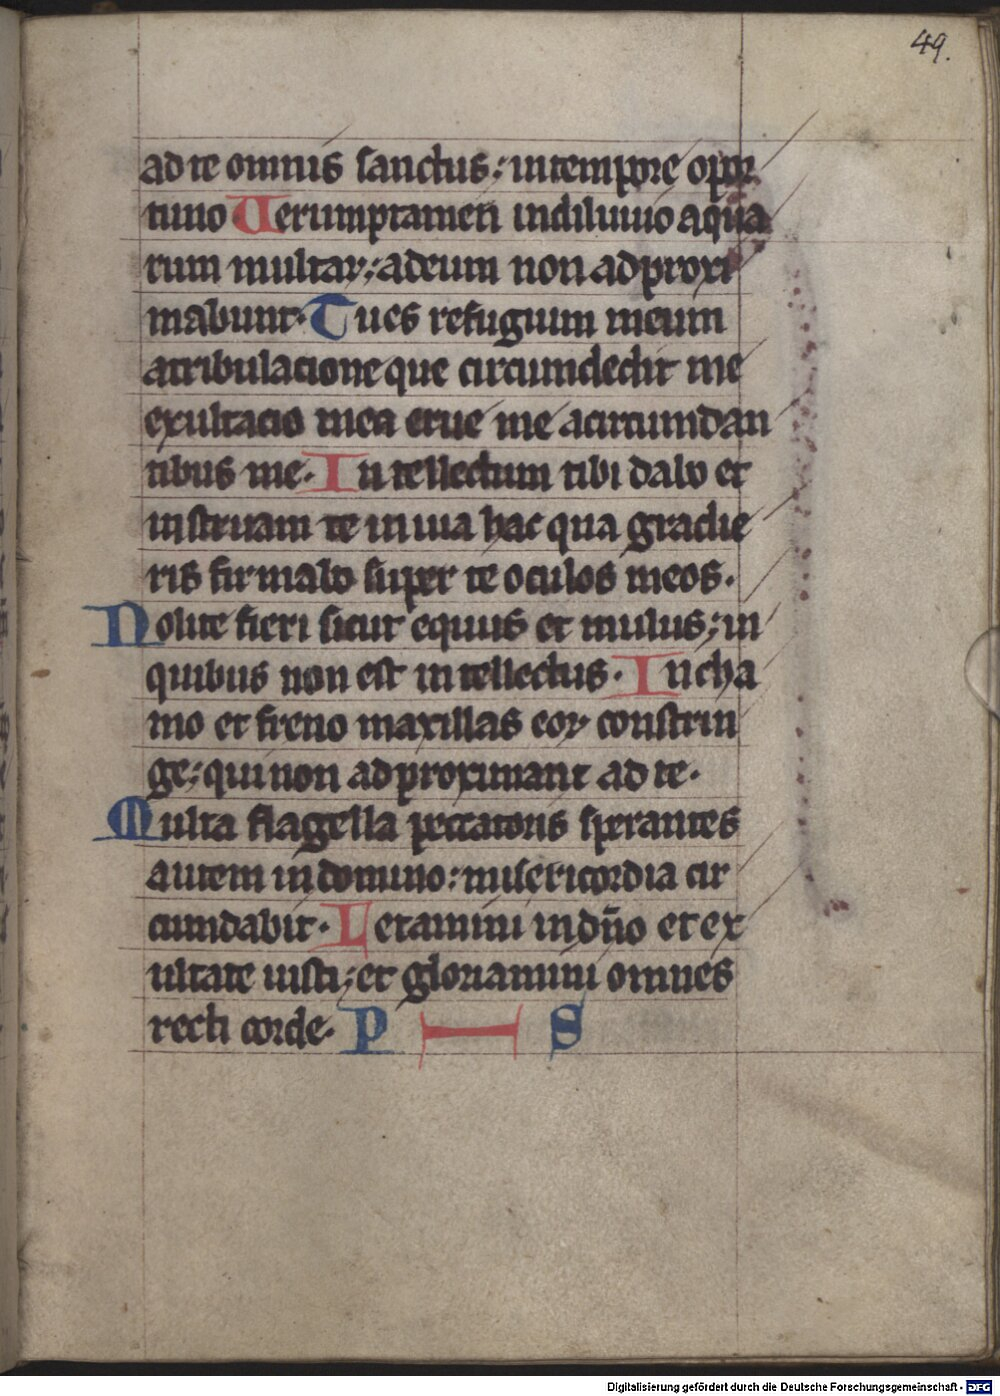 49.
ad te omnis sanctus: in tempore opor
tuno Uerumptamen in diluuio aqua
rum multaꝝ: ad eum non ad proxi
mabunt. Tu es refugium meum
a tribulacione que circumdedit me
exultacio mea erue me a circumdan
tibus me. Intellectum tibi dabo et
instruam te in uia hac qua gradie
ris firmabo super te oculos meos.
Nolite fieri sicut equus et mulus: in
quibus non est intellectus. In cha
mo et freno maxillas eoꝝ constrin
ge: qui non ad proximant ad te.
Multa flagella peccatoris sperantes
autem in domino: misericordia cir
cumdabit. Letamini in dño et ex
ultate iusti: et gloriamini omnes
recti corde. P S
Digitalisierung gefördert durch die Deutsche Forschungsgemeinschaft - DFG